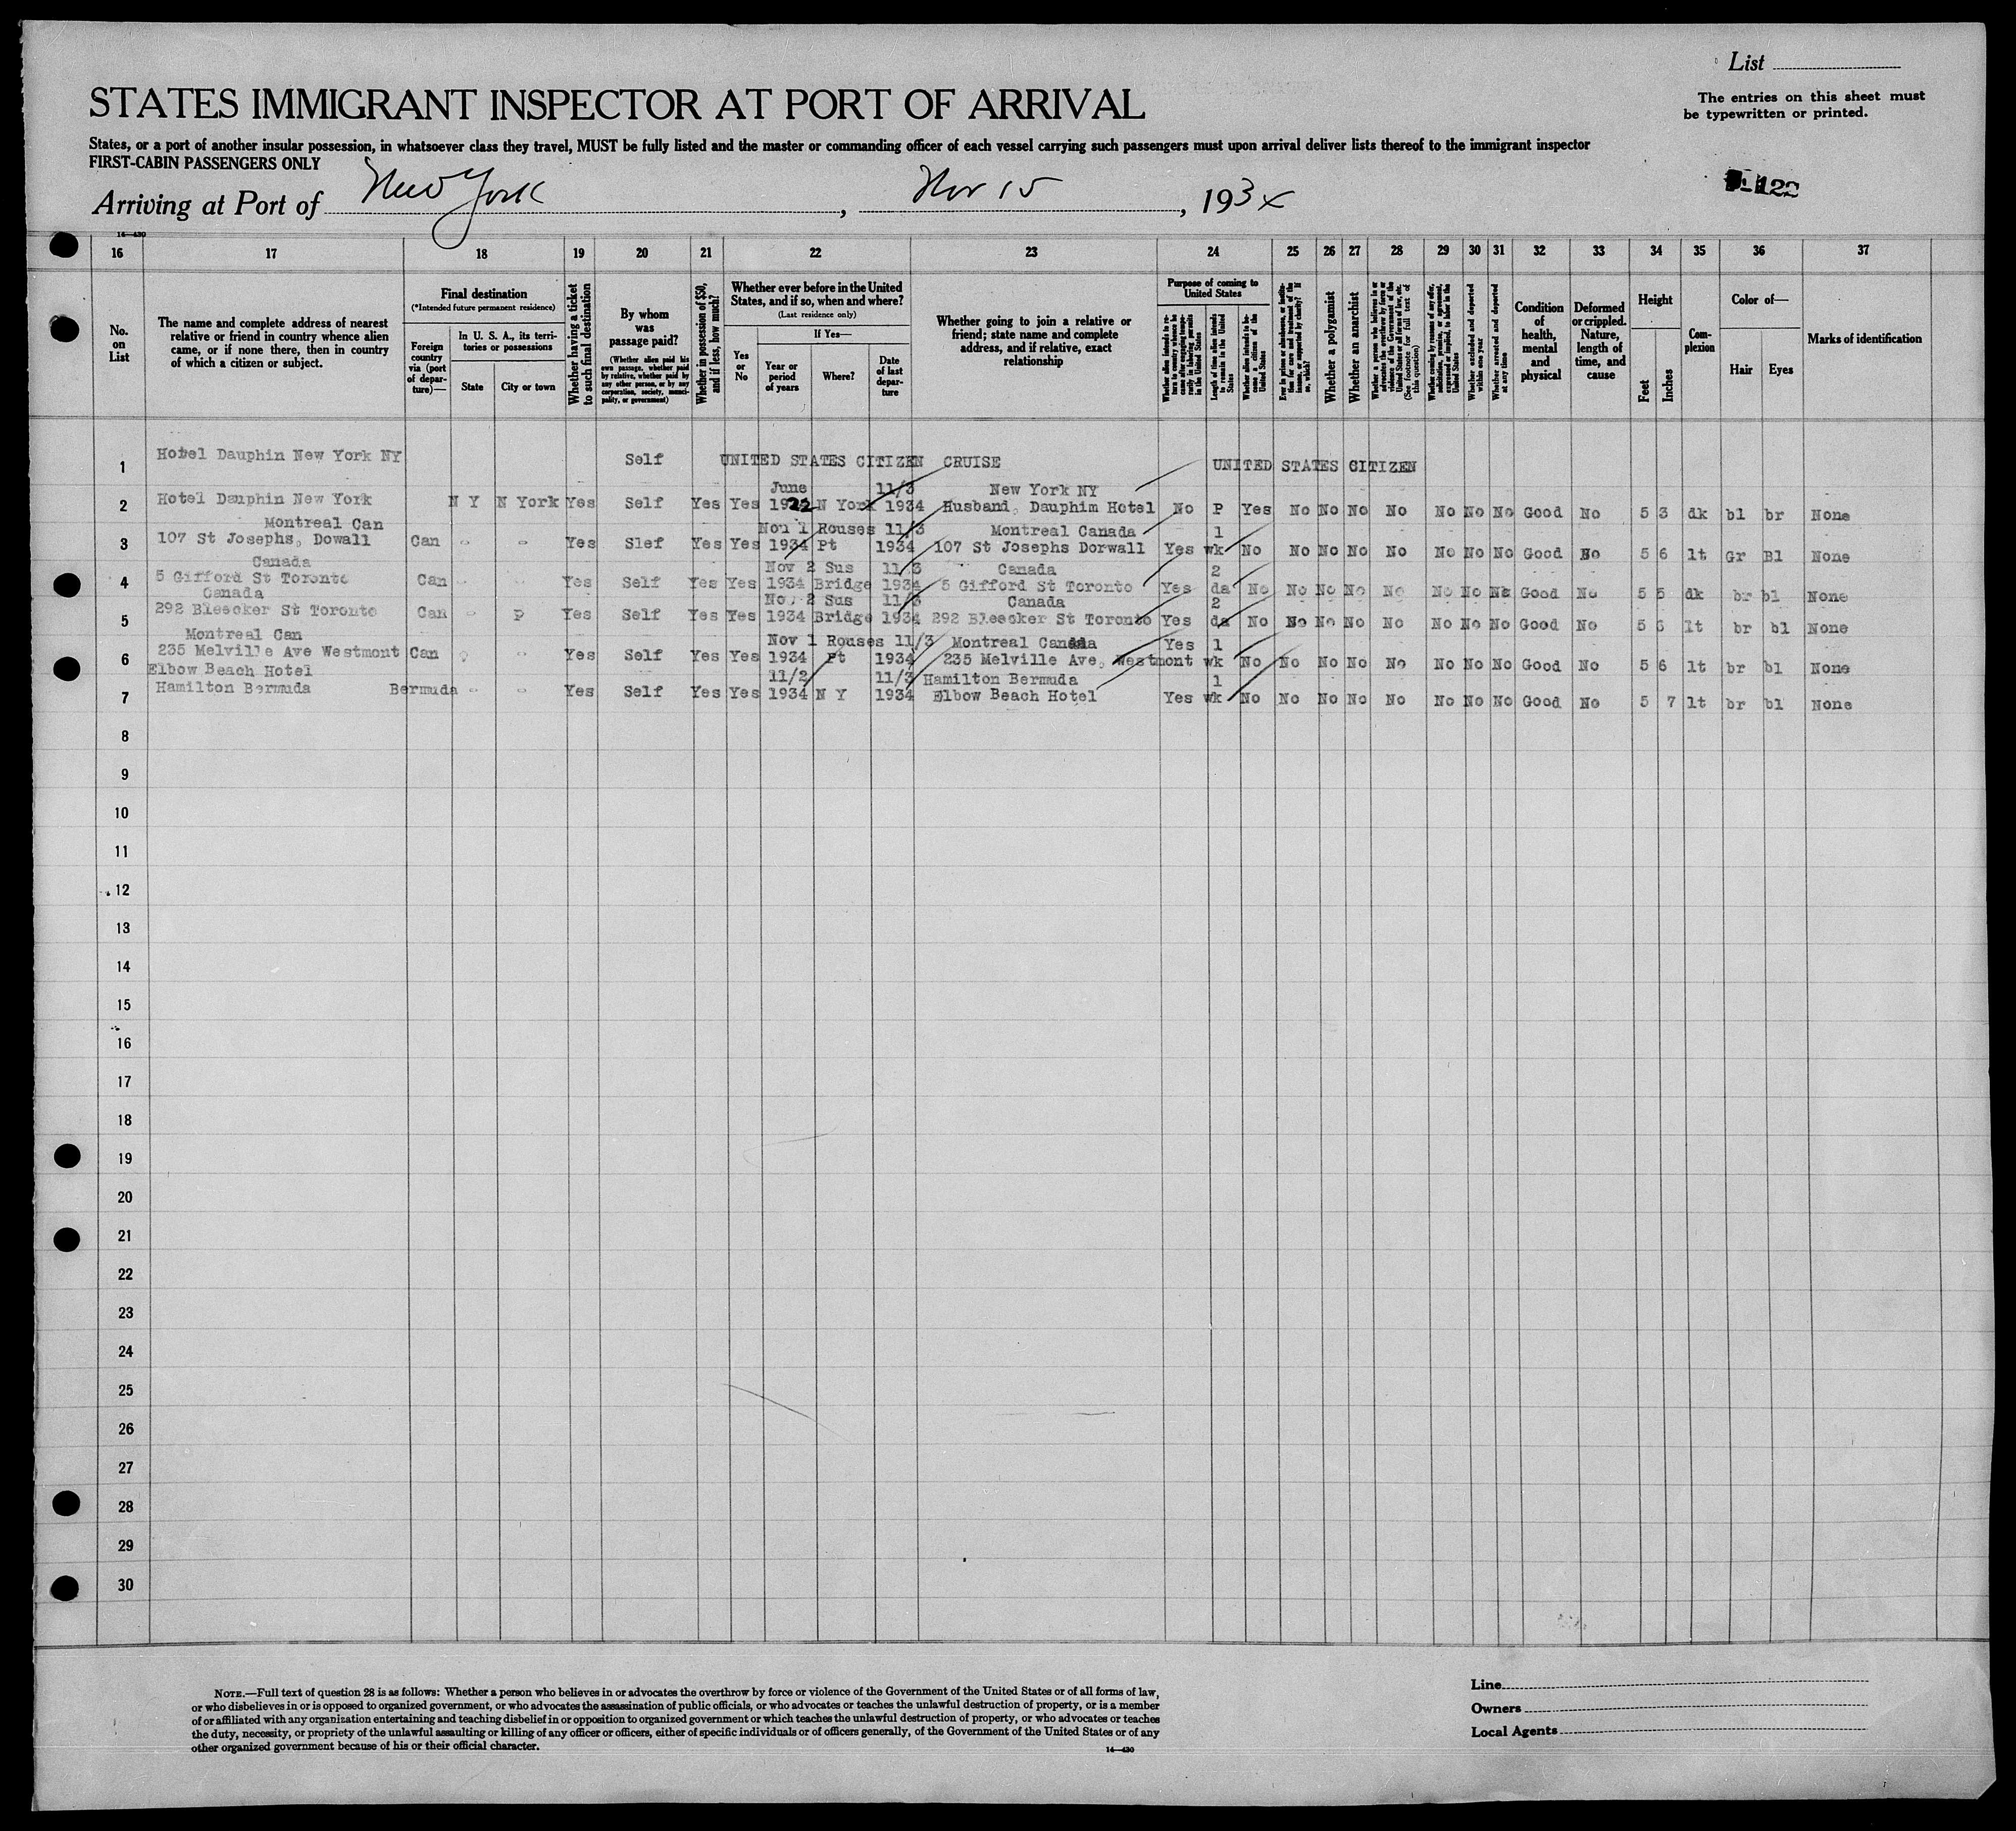 List
STATES IMMIGRANT INSPECTOR AT PORT OF ARRIVAL
The entries on this sheet must
be typewritten or printed.
States, or a port of another insular possession, in whatsoever class they travel, MUST be fully listed and the master or commanding officer of each vessel carrying such passengers must upon arrival deliver lists thereof to the immigrant inspector
FIRST-CABIN PASSENGERS ONLY
Arriving at Port of New York, Nov 15, 1934
122
14—430
16 17 18 19 20 21 22 23 24 25 26 27 28 29 30 31 32 33 34 35 36 37
No. on List
The name and complete address of nearest relative or friend in country whence alien came, or if none there, then in country of which a citizen or subject.
Final destination
(*Intended future permanent residence)
Foreign country via (port of departure)—
In U. S. A., its territories or possessions
State
City or town
Whether having a ticket to such final destination
By whom was passage paid?
(Whether alien paid his own passage, whether paid by relative, whether paid by any other person, or by any corporation, society, municipality, or government)
Whether in possession of $50, and if less, how much?
Whether ever before in the United States, and if so, when and where?
(Last residence only)
Yes or No
If Yes—
Year or period of years
Where?
Date of last departure
Whether going to join a relative or friend; state name and complete address, and if relative, exact relationship
Purpose of coming to United States
Whether alien intends to return to country whence he came after engaging temporarily in laboring pursuits in the United States
Length of time alien intends to remain in the United States
Whether alien intends to become a citizen of the United States
Ever in prison or almshouse, or institution for care and treatment of the insane, or supported by charity? If so, which?
Whether a polygamist
Whether an anarchist
Whether a person who believes in or advocates the overthrow by force or violence of the Government of the United States or all forms of law, etc. (See footnote for full text of this question)
Whether coming by reason of any offer, solicitation, promise, or agreement, expressed or implied, to labor in the United States
Whether excluded and deported within one year
Whether arrested and deported at any time
Condition of health, mental and physical
Deformed or crippled. Nature, length of time, and cause
Height
Feet
Inches
Complexion
Color of—
Hair
Eyes
Marks of identification
1 Hotel Dauphin New York NY Self UNITED STATES CITIZEN CRUISE UNITED STATES CITIZEN
June 11/3 New York NY
2 Hotel Dauphin New York N Y N York Yes Self Yes Yes 1922 N York 1934 Husband, Dauphim Hotel No P Yes No No No No No No No Good No 5 3 dk bl br None
Montreal Can Nov 1 Rouses 11/3 Montreal Canada 1
3 107 St Josephs, Dowall Can - - Yes Slef Yes Yes 1934 Pt 1934 107 St Josephs Dorwall Yes wk No No No No No No No No Good No 5 6 lt Gr Bl None
Canada Nov 2 Sus 11/3 Canada 2
4 5 Gifford St Toronto Can - - Yes Self Yes Yes 1934 Bridge 1934 5 Gifford St Toronto Yes da No No No No No No No No Good No 5 5 dk br bl None
Canada Nov 2 Sus 11/3 Canada 2
5 292 Bleecker St Toronto Can - p Yes Self Yes Yes 1934 Bridge 1934 292 Bleecker St Toronto Yes da No No No No No No No No Good No 5 lt br bl None
Montreal Can Nov 1 Rouses 11/3 Montreal Canada Yes 1
6 235 Melville Ave Westmont Can - - Yes Self Yes Yes 1934 Pt 1934 235 Melville Ave, Westmont wk No No No No No No No No Good No 5 6 lt br bl None
Elbow Beach Hotel 11/2 11/3 Hamilton Bermuda 1
7 Hamilton Bermuda Bermuda - - Yes Self Yes Yes 1934 N Y 1934 Elbow Beach Hotel Yes wk No No No No No No No No Good No 5 7 lt br bl None
8
9
10
11
12
13
14
15
16
17
18
19
20
21
22
23
24
25
26
27
28
29
30
NOTE.—Full text of question 28 is as follows: Whether a person who believes in or advocates the overthrow by force or violence of the Government of the United States or of all forms of law,
or who disbelieves in or is opposed to organized government, or who advocates the assassination of public officials, or who advocates or teaches the unlawful destruction of property, or is a member
of or affiliated with any organization entertaining and teaching disbelief in or opposition to organized government or which teaches the unlawful destruction of property, or who advocates or teaches
the duty, necessity, or propriety of the unlawful assaulting or killing of any officer or officers, either of specific individuals or of officers generally, of the Government of the United States or of any
other organized government because of his or their official character.
14—430
Line
Owners
Local Agents